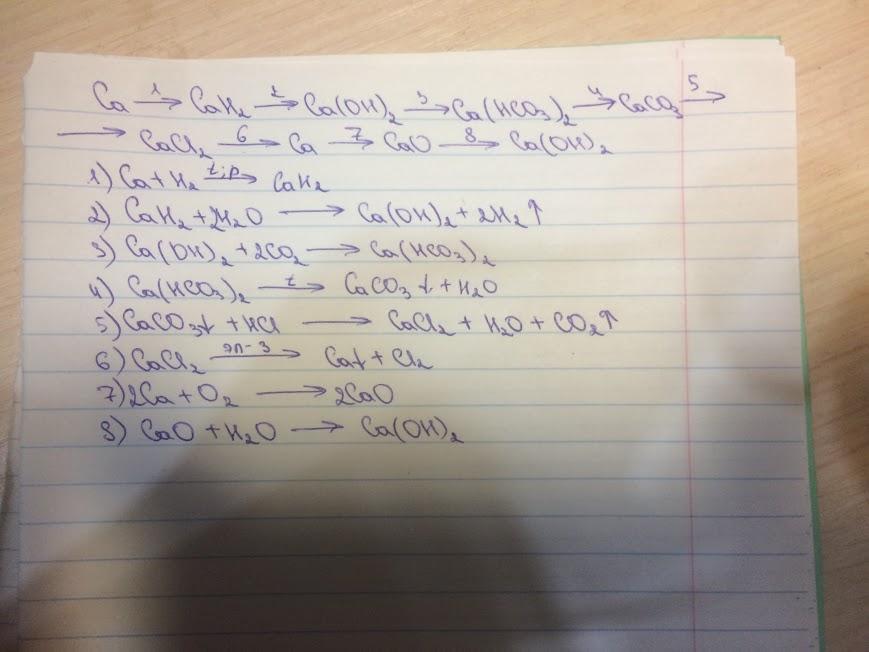 Ca 1→ CaH₂ 2→ Ca(OH)₂ 3→ Ca(HCO₃)₂ 4→ CaCO₃ 5→
→ CaCl₂ 6→ Ca 7→ CaO 8→ Ca(OH)₂
1) Ca + H₂ t;p→ CaH₂
2) CaH₂ + 2H₂O → Ca(OH)₂ + 2H₂↑
3) Ca(OH)₂ + 2CO₂ → Ca(HCO₃)₂
4) Ca(HCO₃)₂ t→ CaCO₃↓ + H₂O
5) CaCO₃↓ + HCl → CaCl₂ + H₂O + CO₂↑
6) CaCl₂ эл-з→ Ca↓ + Cl₂
7) 2Ca + O₂ → 2CaO
8) CaO + H₂O → Ca(OH)₂